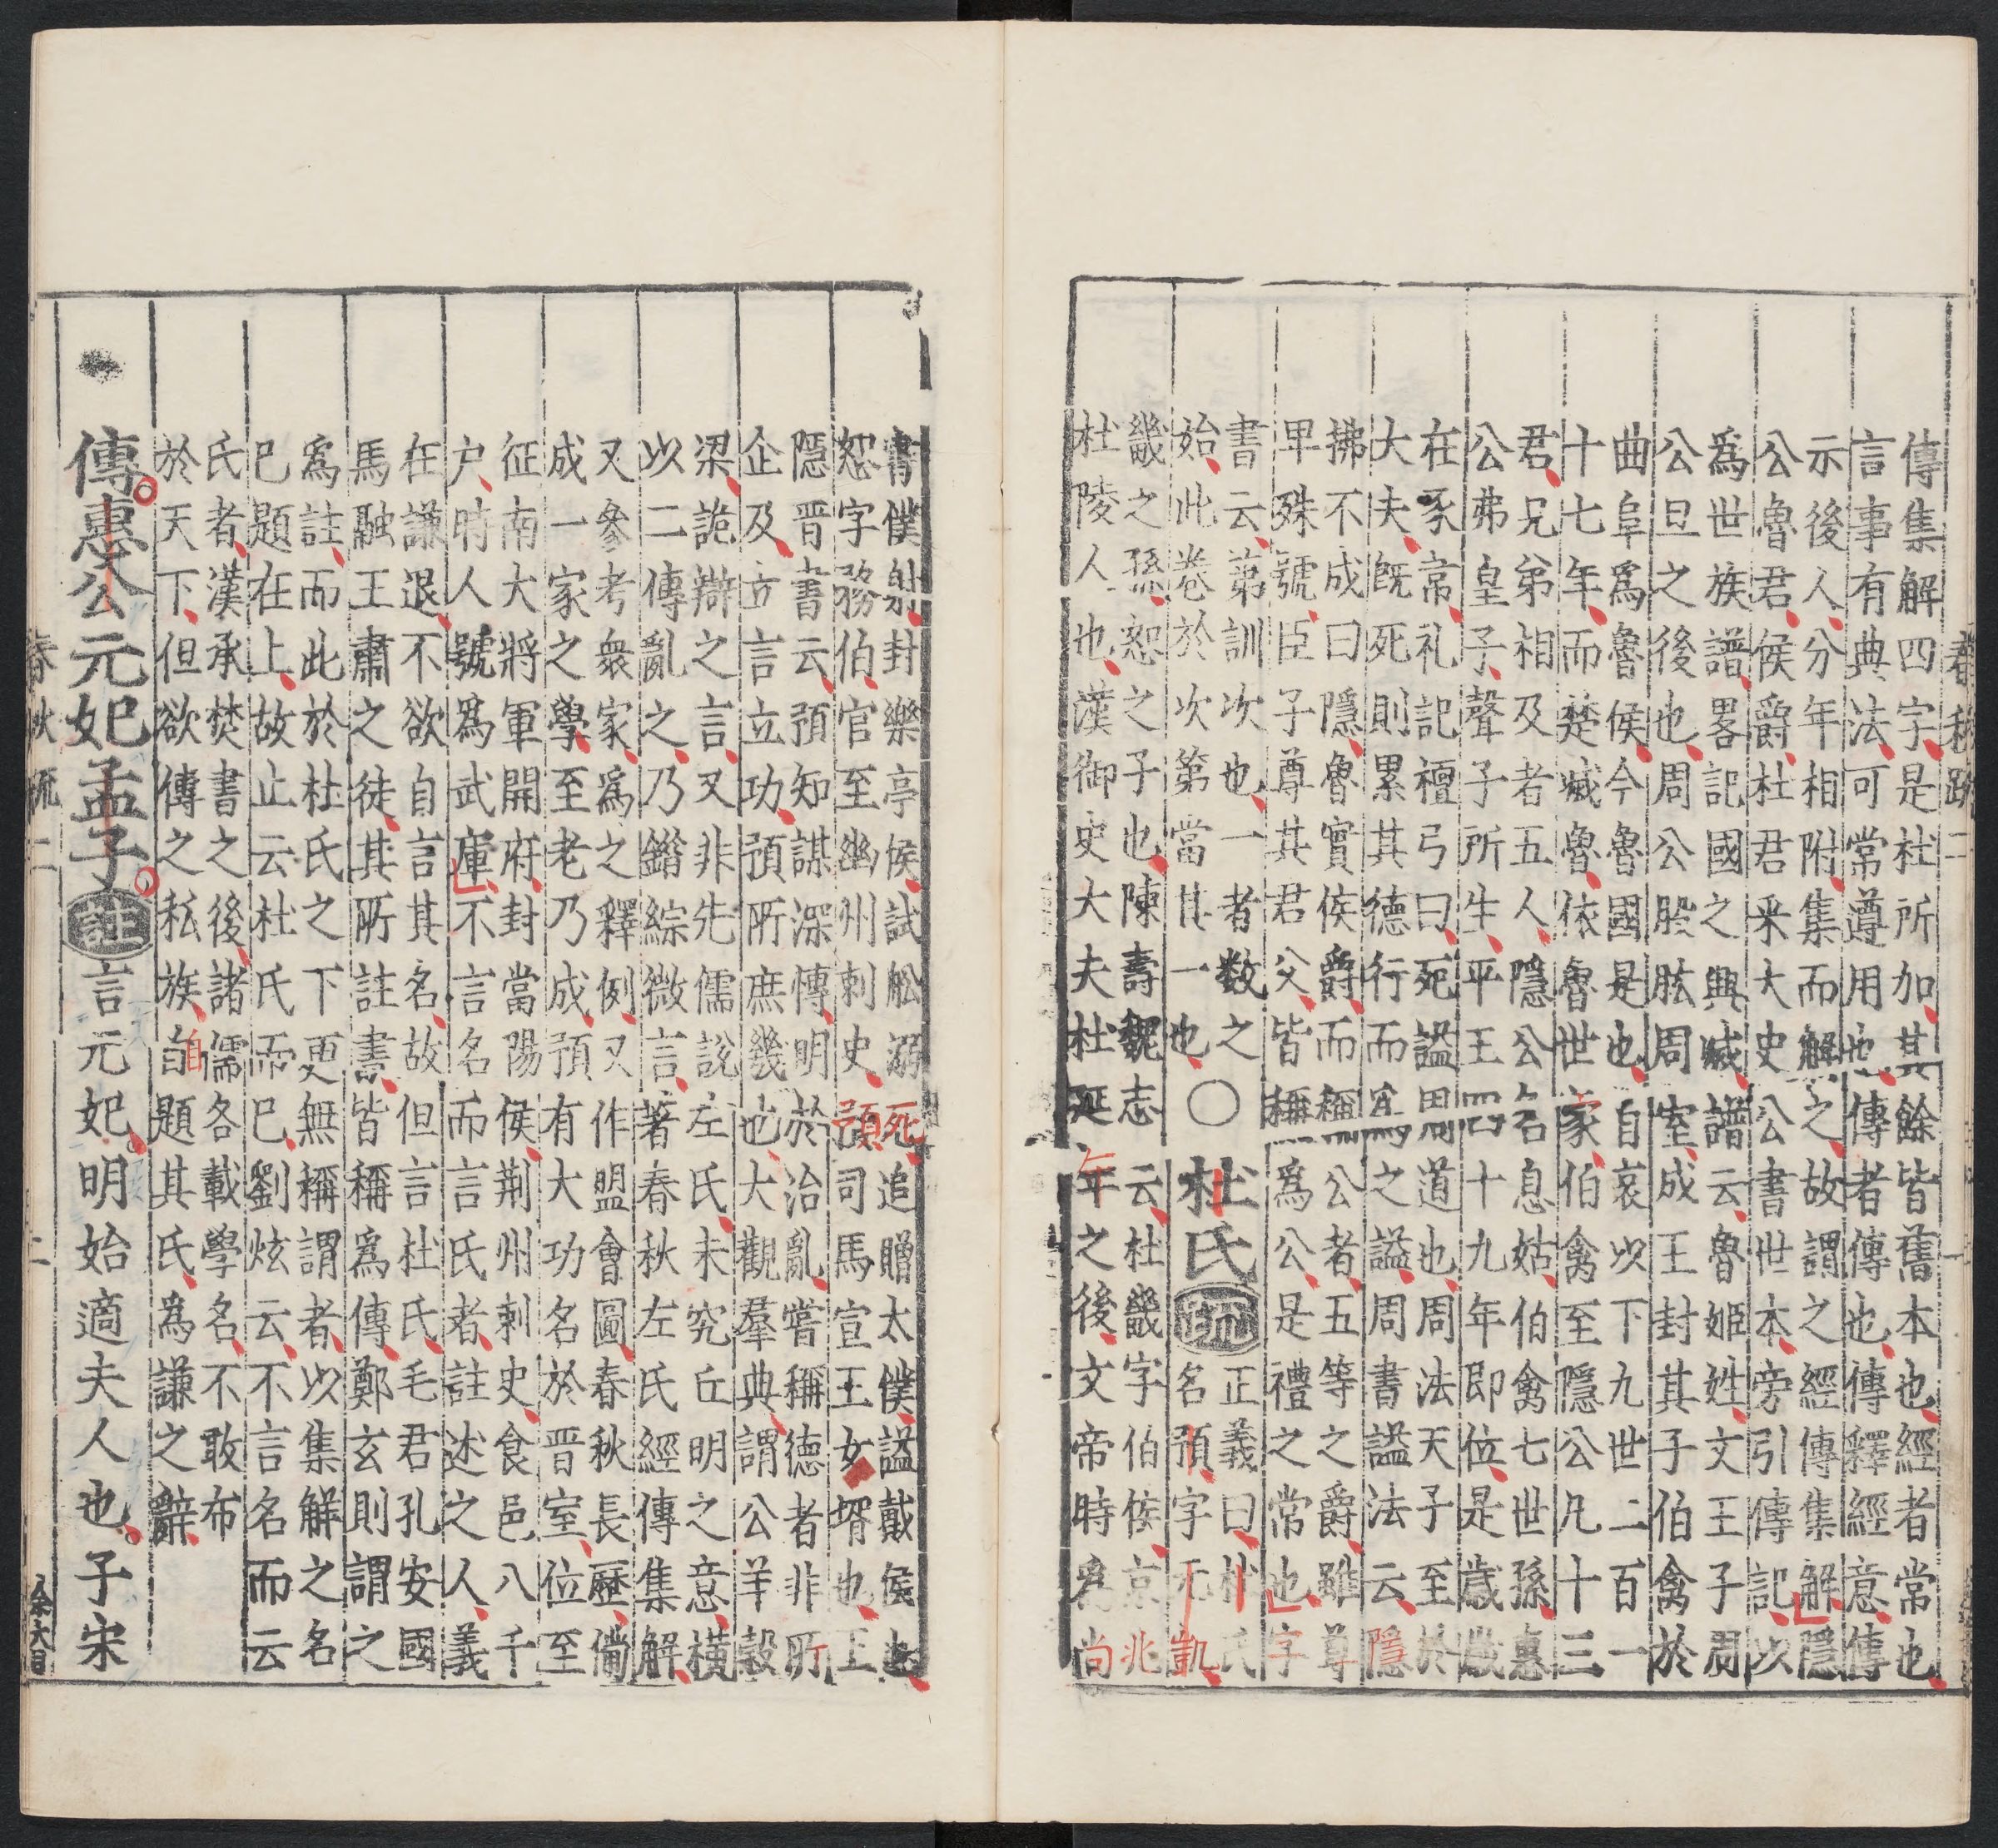 春秋疏二 一
傳集解四字是杜所加其餘皆舊本也經者常也
言事有典法可常遵用也傳者傳也傳釋經意傳
示後人分年相附集而解之故謂之經傳集解隱
公魯君侯爵杜君采大史公書世本旁引傳記以
爲世族譜畧記國之興㓕譜云魯姬姓文王子周
公旦之後也周公股肱周室成王封其子伯禽於
曲阜爲魯侯今魯國是也自哀以下九世二百一
十七年而楚㓕魯依魯世家伯禽至隱公凡十三
君兄弟相及者五人隱公名息姑伯禽七世孫惠
公弗皇子聲子所生平王四十九年即位是歲歲
在豕常礼記檀弓曰死謚周道也周法天子至於
大夫既死則累其德行而爲之謚周書謚法云隱
拂不成曰隱魯實侯爵而稱公者五等之爵雖尊
卑殊號臣子尊其君父皆稱爲公是禮之常也字
書云第訓次也一者数之
始此卷於次第當其一也〇
杜氏疏
正義曰杜氏
名預字元凱
畿之孫恕之子也陳壽魏志云杜畿字伯侯京兆
杜陵人也漢御史大夫杜延年之後文帝時爲尚
書僕射封樂亭侯試舩溺死追贈太僕謚戴侯也
恕字務伯官至幽州刺史預司馬宣王女壻也王
隱晋書云預知謀深博明於治亂嘗稱德者非所
企及立言立功預所庶幾也大觀羣典謂公羊穀
梁詭辯之言又非先儒說左氏未究丘明之意横
以二傳亂之乃錯綜微言著春秋左氏經傳集解
又參考衆家爲之釋例又作盟會圖春秋長歷備
成一家之學至老乃成預有大功名於晋室位至
征南大將軍開府封當陽侯荆州刺史食邑八千
户時人號爲武庫不言名而言氏者註述之人義
在謙退不欲自言其名故但言杜氏毛君孔安國
馬融王肅之徒其所註書皆稱爲傳鄭玄則謂之
爲註而此於杜氏之下更無稱謂者以集解之名
已題在上故止云杜氏而已劉炫云不言名而云
氏者漢承焚書之後諸儒各載學名不敢布
於天下但欲傳之私族自題其氏爲謙之辭
傳惠公元妃孟子註言元妃明始適夫人也子宋
春秋疏二 二 余大目